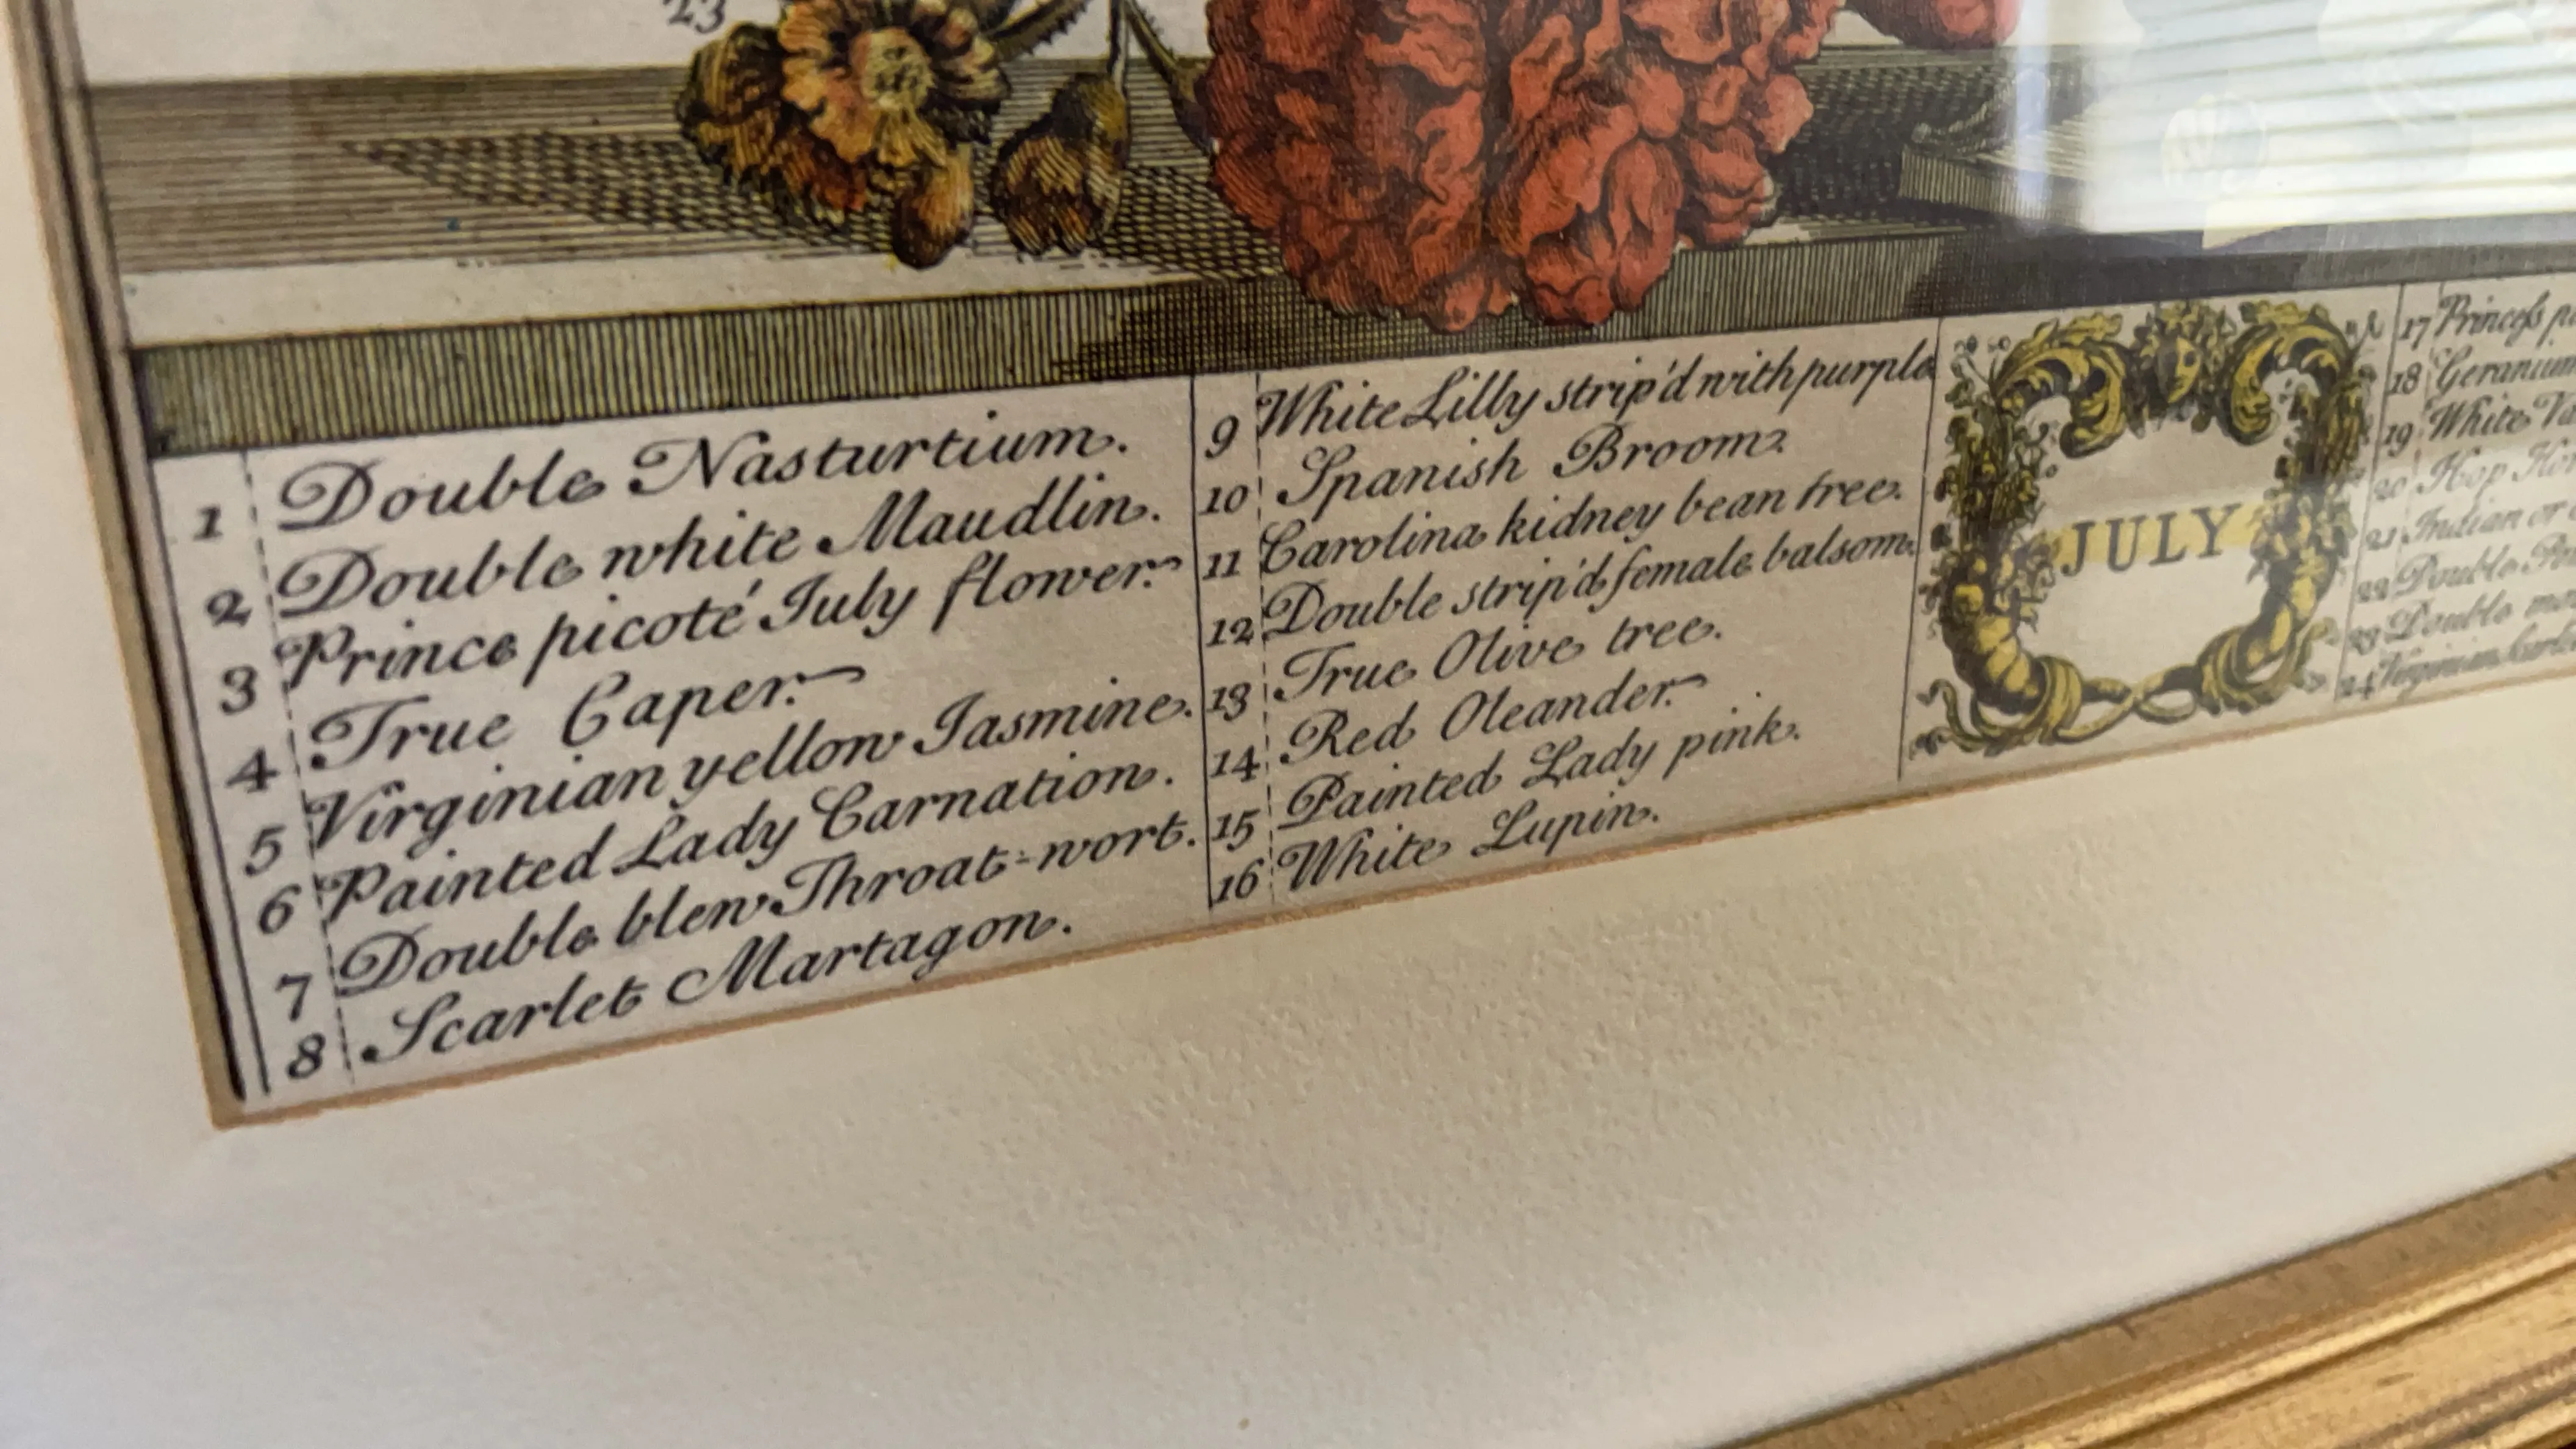 23
1 Double Nasturtium.
2 Double white Maudlin.
3 Prince picoté July flower.
4 True Caper.
5 Virginian yellow Jasmine.
6 Painted Lady Carnation.
7 Double blew Throat-wort.
8 Scarlet Martagon.
9 White Lilly strip'd with purple
10 Spanish Broom.
11 Carolina kidney bean tree.
12 Double strip'd female balsom.
13 True Olive tree.
14 Red Oleander.
15 Painted Lady pink.
16 White Lupin.
JULY
17 Princess
18 Geranium
19 White
20 Hop
21 Indian or
22 Double
23 Double
24 Virginian